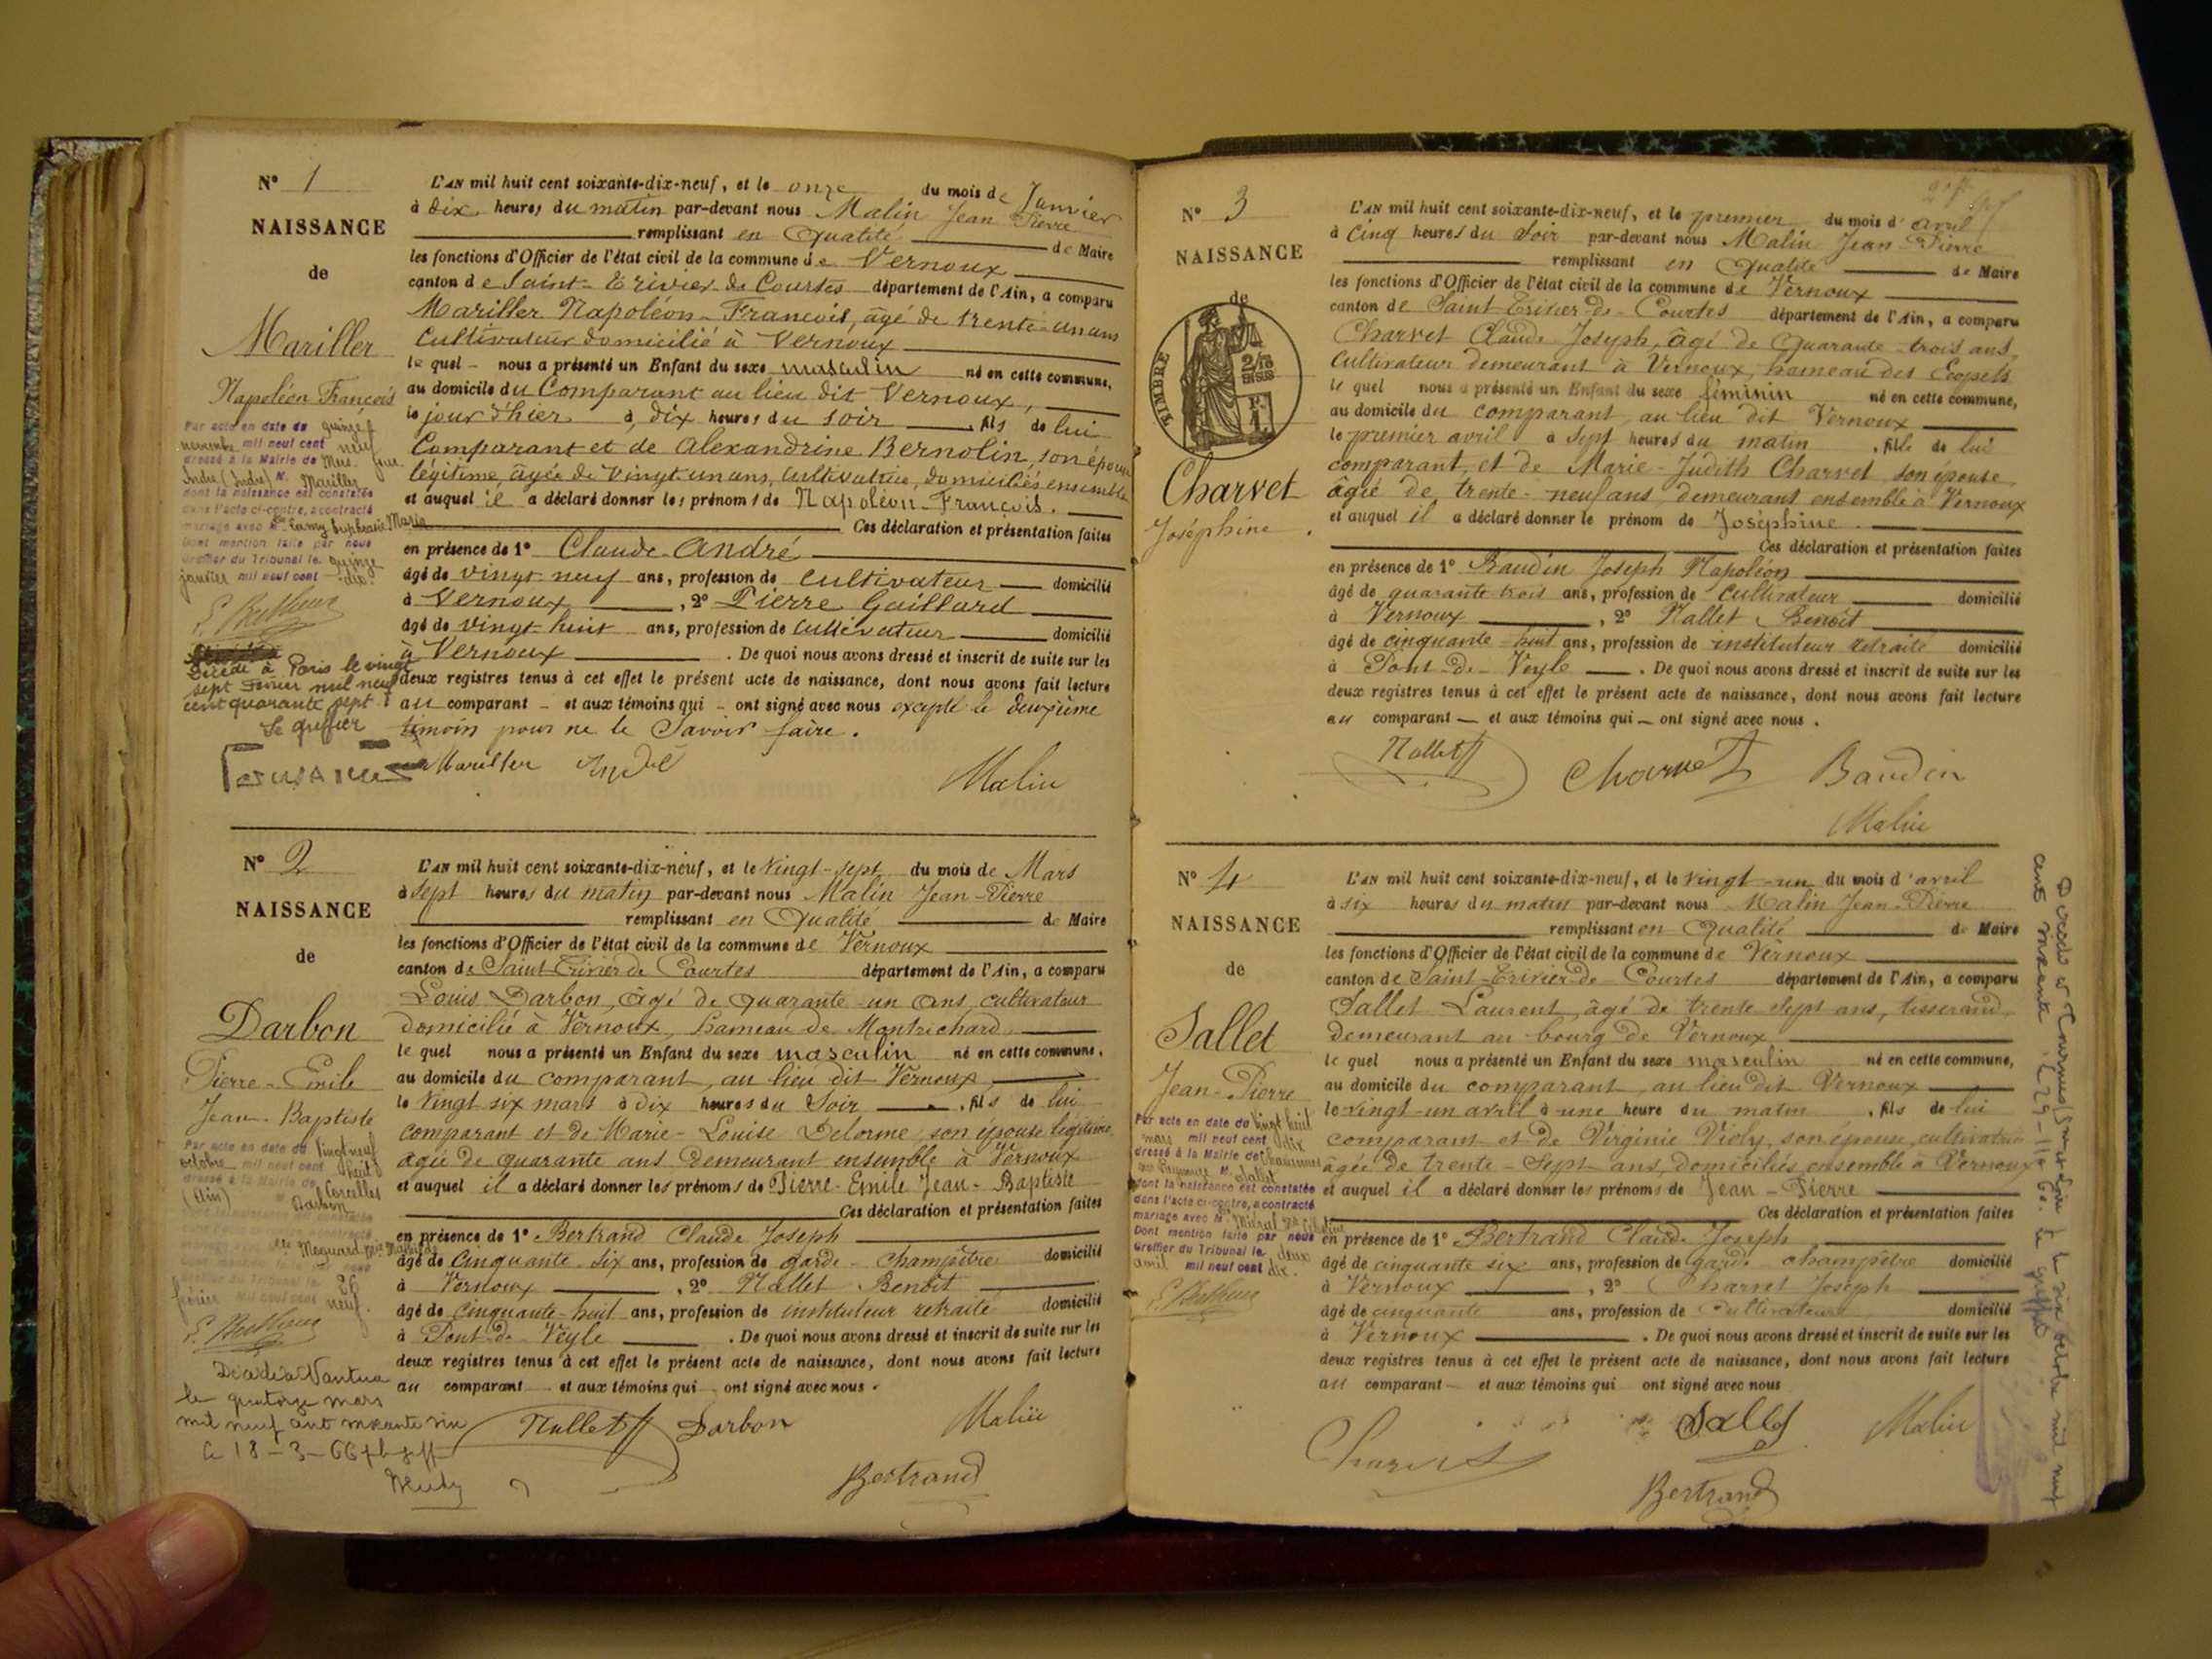 N° 1
NAISSANCE
de
Mariller
Napoléon François
Par acte en date du quinze
novembre mil neuf cent neuf
dressé à la Mairie de
Indre (Indre) M. Mariller
dont la naissance est constatée
dans l'acte ci-contre, a contracté
mariage avec Marie
Dont mention faite par nous
Greffier du Tribunal le quinze
janvier mil neuf cent dix
Décédé à Paris le vingt
sept Février mil neuf
cent quarante sept
Le greffier
L'AN mil huit cent soixante-dix-neuf, et le onze du mois de Janvier
à dix heures du matin par-devant nous Malin Jean Pierre
remplissant en Qualité de Maire
les fonctions d'Officier de l'état civil de la commune de Vernoux
canton de Saint-Trivier-de Courtes département de l'Ain, a comparu
Mariller Napoléon-François, âgé de trente-un ans
Cultivateur domicilié à Vernoux
le quel nous a présenté un Enfant du sexe masculin né en cette commune,
au domicile du Comparant au lieu dit Vernoux,
le jour d'hier à dix heures du soir fils de lui
Comparant et de Alexandrine Bernolin, son épouse
légitime, âgée de vingt-un ans, cultivatrice, domiciliés ensemble
et auquel il a déclaré donner les prénoms de Napoléon-François.
Ces déclaration et présentation faites
en présence de 1° Claude André
âgé de vingt-neuf ans, profession de cultivateur domicilié
à Vernoux, 2° Pierre Gaillard
âgé de vingt-huit ans, profession de cultivateur domicilié
à Vernoux. De quoi nous avons dressé et inscrit de suite sur les
deux registres tenus à cet effet le présent acte de naissance, dont nous avons fait lecture
au comparant et aux témoins qui ont signé avec nous excepté le deuxième
témoin pour ne le Savoir faire.
Mariller André
Malin
N° 2
NAISSANCE
de
Darbon
Pierre-Emile
Jean-Baptiste
Par acte en date du vingt neuf
octobre mil neuf cent huit
dressé à la Mairie de Corcelles
(Ain) Darbon
février mil neuf cent neuf.
Décédé à Nantua
le quatorze mars
mil neuf cent soixante six
le 18-3-66
L'AN mil huit cent soixante-dix-neuf, et le vingt-sept du mois de Mars
à sept heures du matin par-devant nous Malin Jean-Pierre
remplissant en Qualité de Maire
les fonctions d'Officier de l'état civil de la commune de Vernoux
canton de Saint Trivier de Courtes département de l'Ain, a comparu
Louis Darbon, âgé de quarante-un ans, cultivateur
domicilié à Vernoux, hameau de Montrichard
le quel nous a présenté un Enfant du sexe masculin né en cette commune,
au domicile du comparant, au lieu dit Vernoux
le vingt six mars à dix heures du soir, fils de lui
comparant et de Marie-Louise Delorme, son épouse légitime
agée de quarante ans demeurant ensemble à Vernoux
et auquel il a déclaré donner les prénoms de Pierre-Emile Jean-Baptiste
Ces déclaration et présentation faites
en présence de 1° Bertrand Claude Joseph
âgé de cinquante-six ans, profession de garde-champêtre domicilié
à Vernoux, 2° Nallet Benoît
âgé de cinquante-huit ans, profession de instituteur retraité domicilié
à Pont-de-Veyle. De quoi nous avons dressé et inscrit de suite sur les
deux registres tenus à cet effet le présent acte de naissance, dont nous avons fait lecture
au comparant et aux témoins qui ont signé avec nous.
Nallet Darbon Malin
Bertrand
N° 3
NAISSANCE
de
TIMBRE
Charvet
Joséphine
L'AN mil huit cent soixante-dix-neuf, et le premier du mois d'avril
à cinq heures du soir par-devant nous Malin Jean-Pierre
remplissant en Qualité de Maire
les fonctions d'Officier de l'état civil de la commune de Vernoux
canton de Saint Trivier-de-Courtes département de l'Ain, a comparu
Charvet Claude Joseph, âgé de quarante-trois ans,
cultivateur demeurant à Vernoux, hameau des Ecopets
le quel nous a présenté un Enfant du sexe féminin né en cette commune,
au domicile du comparant, au lieu dit Vernoux
le premier avril à sept heures du matin, fille de lui
comparant, et de Marie-Judith Charvet son épouse
âgée de trente-neuf ans, demeurant ensemble à Vernoux
et auquel il a déclaré donner le prénom de Joséphine.
Ces déclaration et présentation faites
en présence de 1° Baudin Joseph Napoléon
âgé de quarante-trois ans, profession de cultivateur domicilié
à Vernoux, 2° Nallet Benoît
âgé de cinquante-huit ans, profession de instituteur retraité domicilié
à Pont-de-Veyle. De quoi nous avons dressé et inscrit de suite sur les
deux registres tenus à cet effet le présent acte de naissance, dont nous avons fait lecture
au comparant et aux témoins qui ont signé avec nous.
Nallet Charvet Baudin
Malin
N° 4
NAISSANCE
de
Sallet
Jean-Pierre
Par acte en date du vingt huit
mars mil neuf cent dix
dressé à la Mairie de
M. Sallet
dont la naissance est constatée
dans l'acte ci-contre, a contracté
mariage avec
Dont mention faite par nous
Greffier du Tribunal le deux
avril mil neuf cent dix.
L'AN mil huit cent soixante-dix-neuf, et le vingt-un du mois d'avril
à six heures du matin par-devant nous Malin Jean-Pierre
remplissant en Qualité de Maire
les fonctions d'Officier de l'état civil de la commune de Vernoux
canton de Saint-Trivier-de-Courtes département de l'Ain, a comparu
Sallet Laurent, âgé de trente-sept ans, tisserand,
demeurant au bourg de Vernoux
le quel nous a présenté un Enfant du sexe masculin né en cette commune,
au domicile du comparant, au lieu dit Vernoux
le vingt-un avril à une heure du matin, fils de lui
comparant et de Virginie Viöly, son épouse, cultivatrice
âgée de trente-sept ans, domiciliés ensemble à Vernoux
et auquel il a déclaré donner les prénoms de Jean-Pierre
Ces déclaration et présentation faites
en présence de 1° Bertrand Claude Joseph
âgé de cinquante six ans, profession de garde champêtre domicilié
à Vernoux, 2° Charvet Joseph
âgé de cinquante ans, profession de cultivateur domicilié
à Vernoux. De quoi nous avons dressé et inscrit de suite sur les
deux registres tenus à cet effet le présent acte de naissance, dont nous avons fait lecture
au comparant et aux témoins qui ont signé avec nous
Charvet Sallet Malin
Bertrand
Décédé à Tournus (Saône et Loire) le six octobre mil neuf
cent soixante